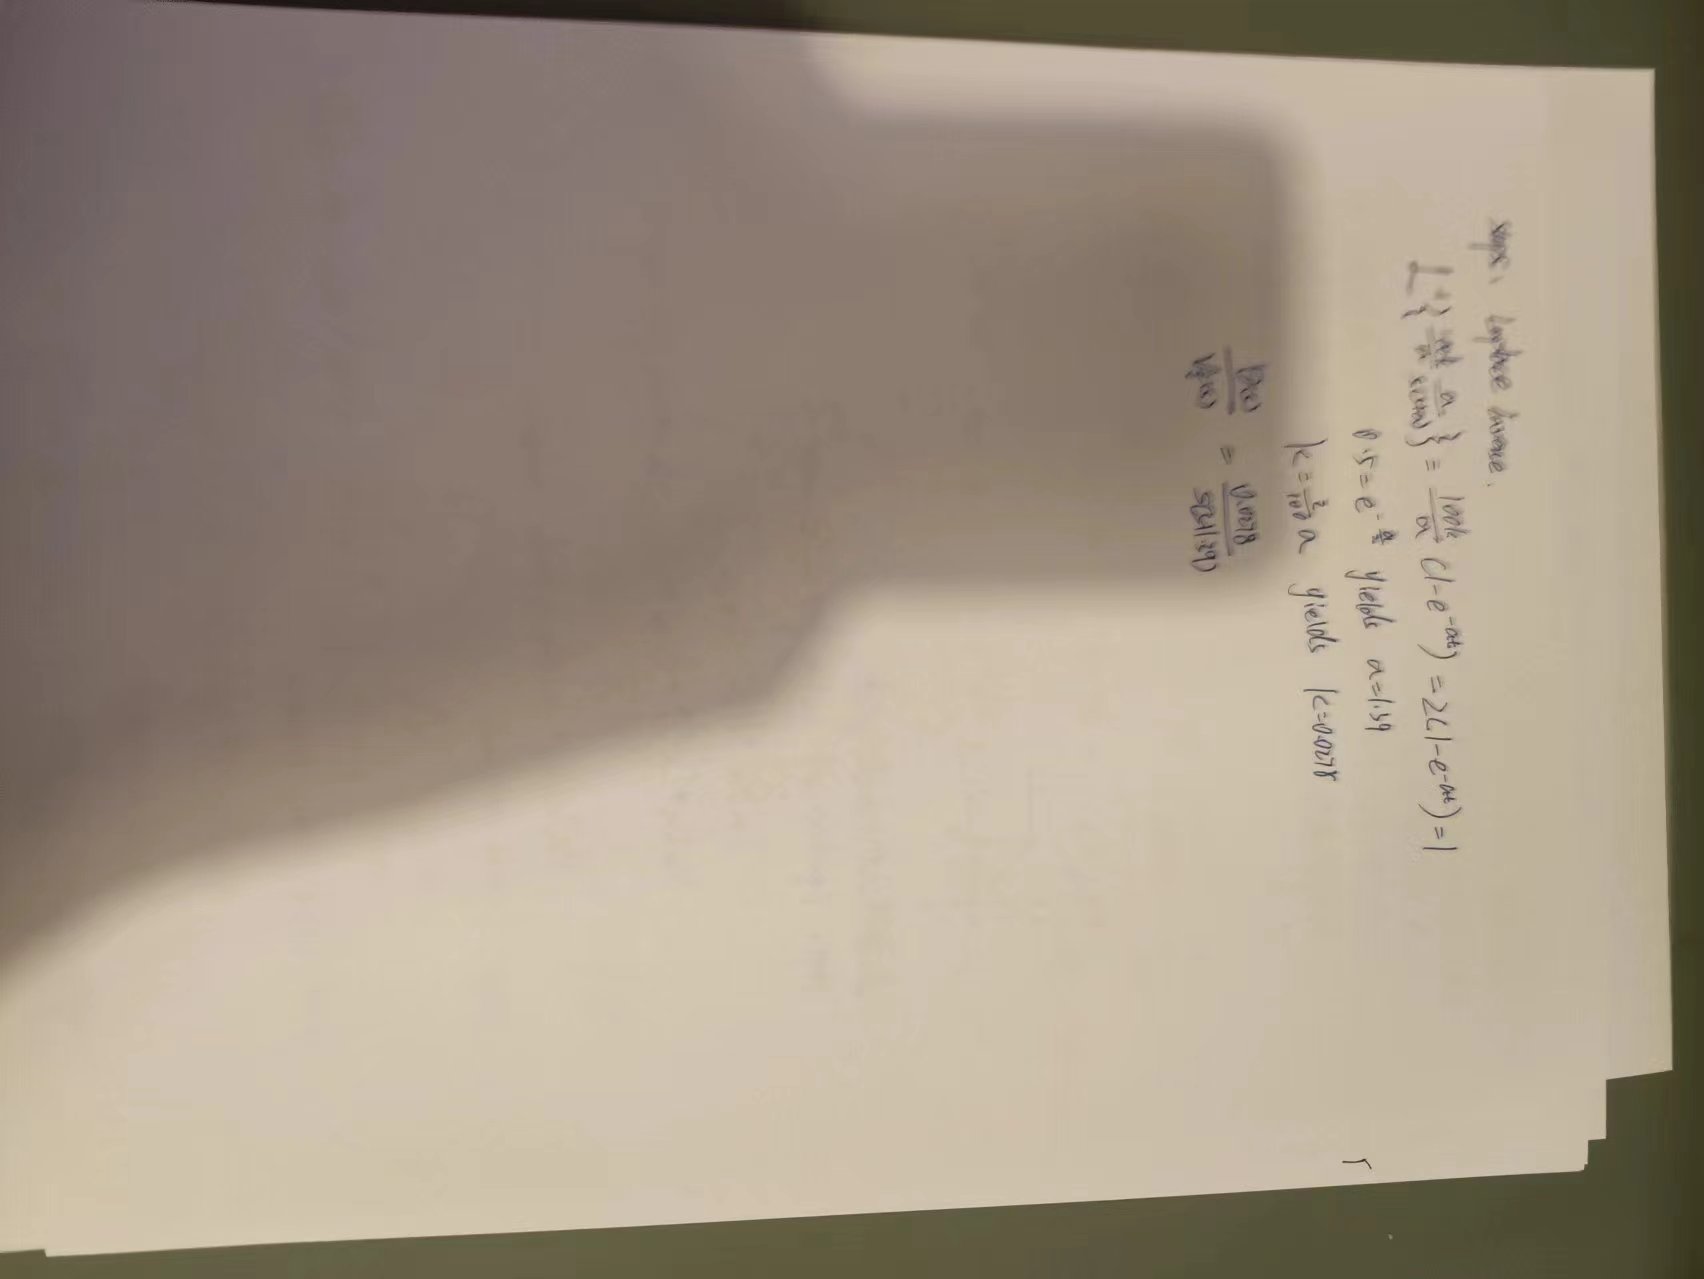 steps: Laplace inverse.
L⁻¹{ 100k/a a/s(s+a) } = 100k/a (1-e^-at) = 2(1-e^-at) = 1
0.5 = e^-a/2 yields a=1.39
k = 2/100 a yields k=0.0278
= 0.0278/s(s+1.39)
5